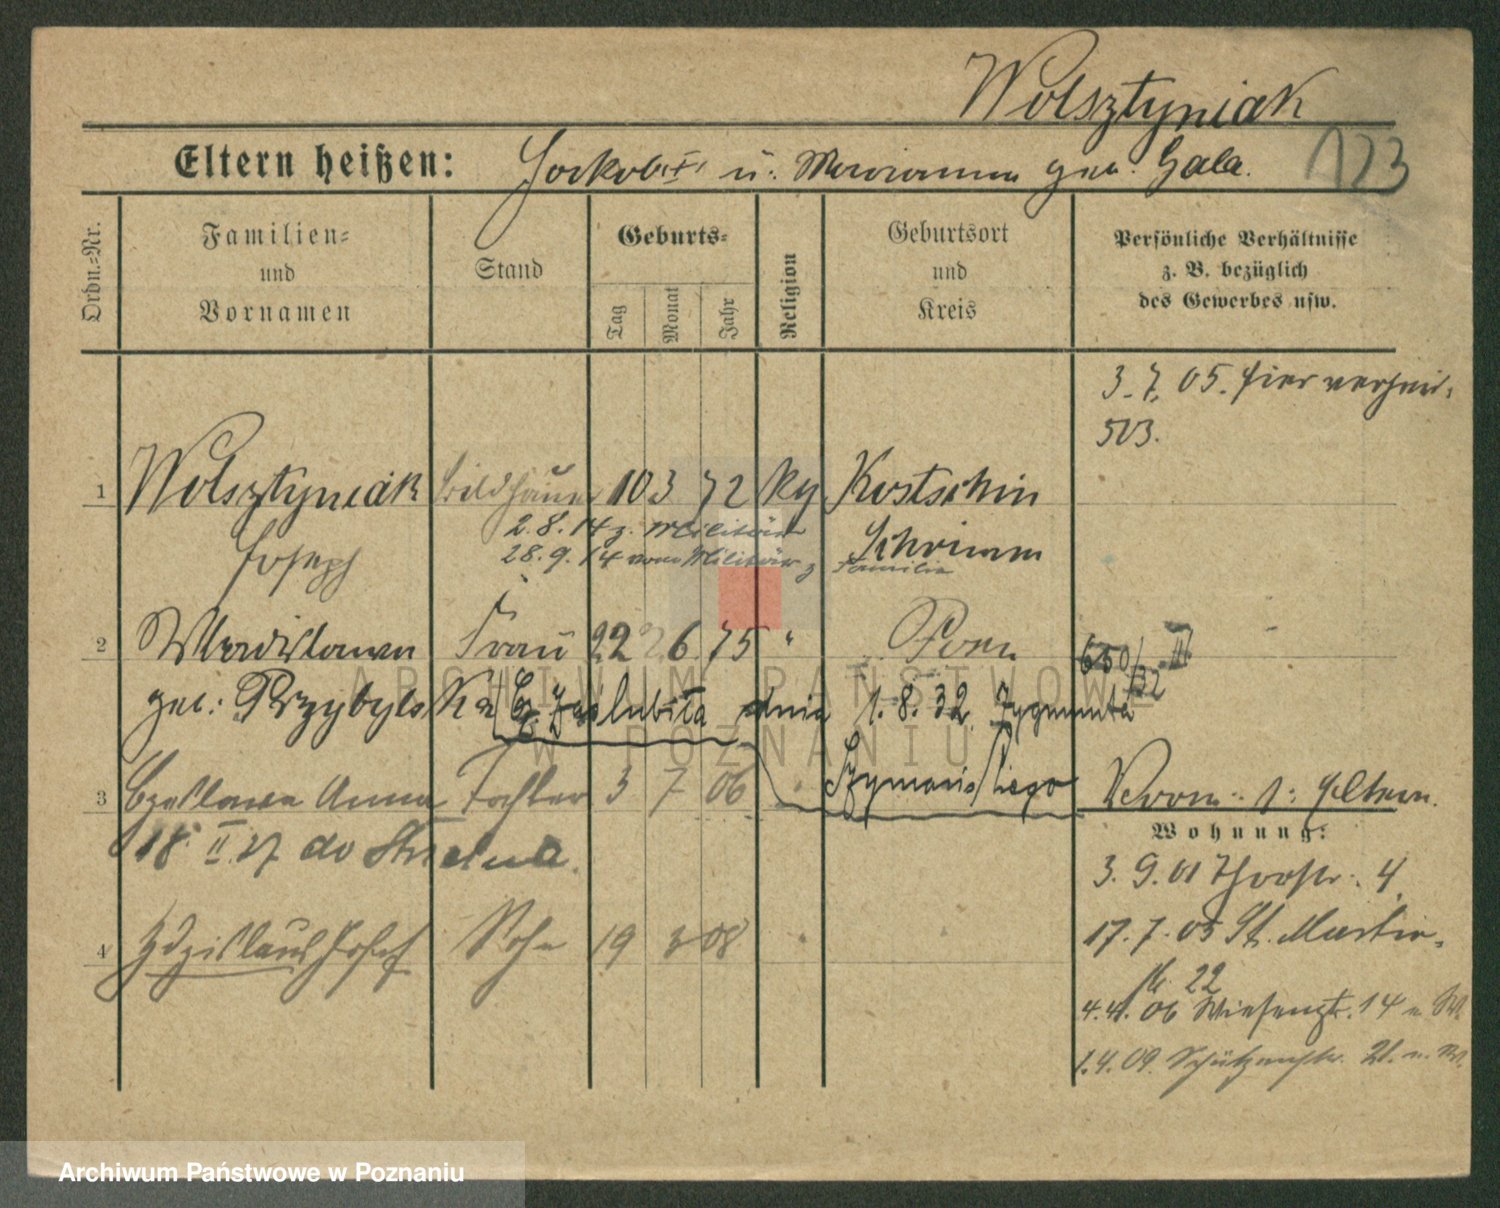 Wolsztyniak
Eltern heißen: Jakob u. Marianna geb. Gala.
123
Ordn.-Nr.
Familien- und Vornamen
Stand
Geburts-
Tag
Monat
Jahr
Religion
Geburtsort und Kreis
Persönliche Verhältnisse
z. B. bezüglich
des Gewerbes usw.
3.7.05. hier verhei.
503.
1 Wolsztyniak Bildhauer 10 3 72 kg Kostschin
2.8.14 z. Militär
Joseph
28.9.14 vom Militär z Familie
Schrimm
2 Wladislawa Frau 22 6 75 " Posen
650/32 II
geb. Przybylska Cz. zaślubiła dnia 1.8.32 Zygmunta
Szymańskiego
3 Czeslawa Anna Tochter 3 7 06
18 II 27 do Strzelna.
4 Zdzislaus Josef Sohn 19 3 08
Wohnung:
3.9.01 4
17.7.05 St. Martin.
22
4.4.06 Wiesenstr. 14
1.4.09. Schützenstr. 21.
ARCHIWUM PAŃSTWOWE
W POZNANIU
Archiwum Państwowe w Poznaniu